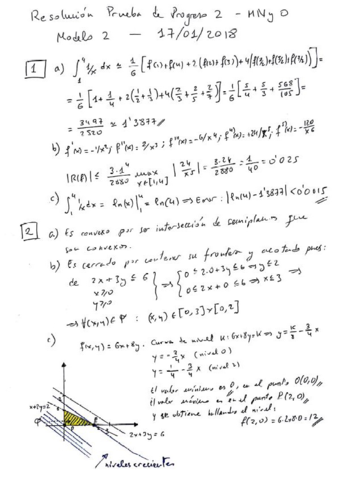 Resolución Prueba de Progreso 2 - MN y O
Modelo 2 — 17/01/2018
1 a) ∫₁⁴ 1/x dx ≈ 1/6 [f(1)+f(4)+2(f(2)+f(3))+4(f(3/2)+f(5/2)+f(7/2))] =
= 1/6 [1+1/4+2(1/2+1/3)+4(2/3+2/5+2/7)] = 1/6 [5/4+5/3+568/105] =
= 3497/2520 ≈ 1'3877
b) f'(x)=-1/x²; f''(x)=2/x³; f'''(x)=-6/x⁴; f⁽⁴⁾(x)=24/x⁵; f⁵(x)=-120/x⁶
|R(f)| ≤ 3·1⁴/2880 max x∈[1,4] |24/x⁵| = 3·24/2880 = 1/40 = 0'025
c) ∫₁⁴ 1/x dx = ln(x)|₁⁴ = ln(4) ⇒ Error: |ln(4)-1'3877| < 0'0015
2 a) Es convexo por ser intersección de semiplanos que
son convexos.
b) Es cerrado por contener su frontera y acotado pues:
de 2x+3y ≤ 6
x≥0
y≥0
⇒ { 0 ≤ 2·0+3y ≤ 6 ⇒ y ≤ 2
0 ≤ 2x+0 ≤ 6 ⇒ x ≤ 3 ⇒
⇒ ∀(x,y)∈ P : (x,y) ∈ [0,3]×[0,2]
c) f(x,y) = 6x+8y. Curva de nivel K: 6x+8y=K ⇒ y = K/8 - 3/4 x
y = -3/4 x (nivel 0)
y = 1/4 - 3/4 x (nivel 2)
El valor mínimo es 0, en el punto O(0,0)
El valor máximo es en el punto P(2,0)
y se obtiene hallando el nivel:
f(2,0) = 6·2+8·0 = 12
2x+3y=6
niveles crecientes